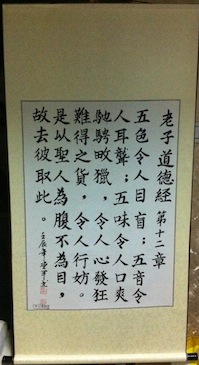 老子道德經 第十二章
五色令人目盲；五音令
人耳聾；五味令人口爽
馳騁畋獵，令人心發狂
難得之貨，令人行妨。
是以聖人為腹不為目，
故去彼取此。壬辰年